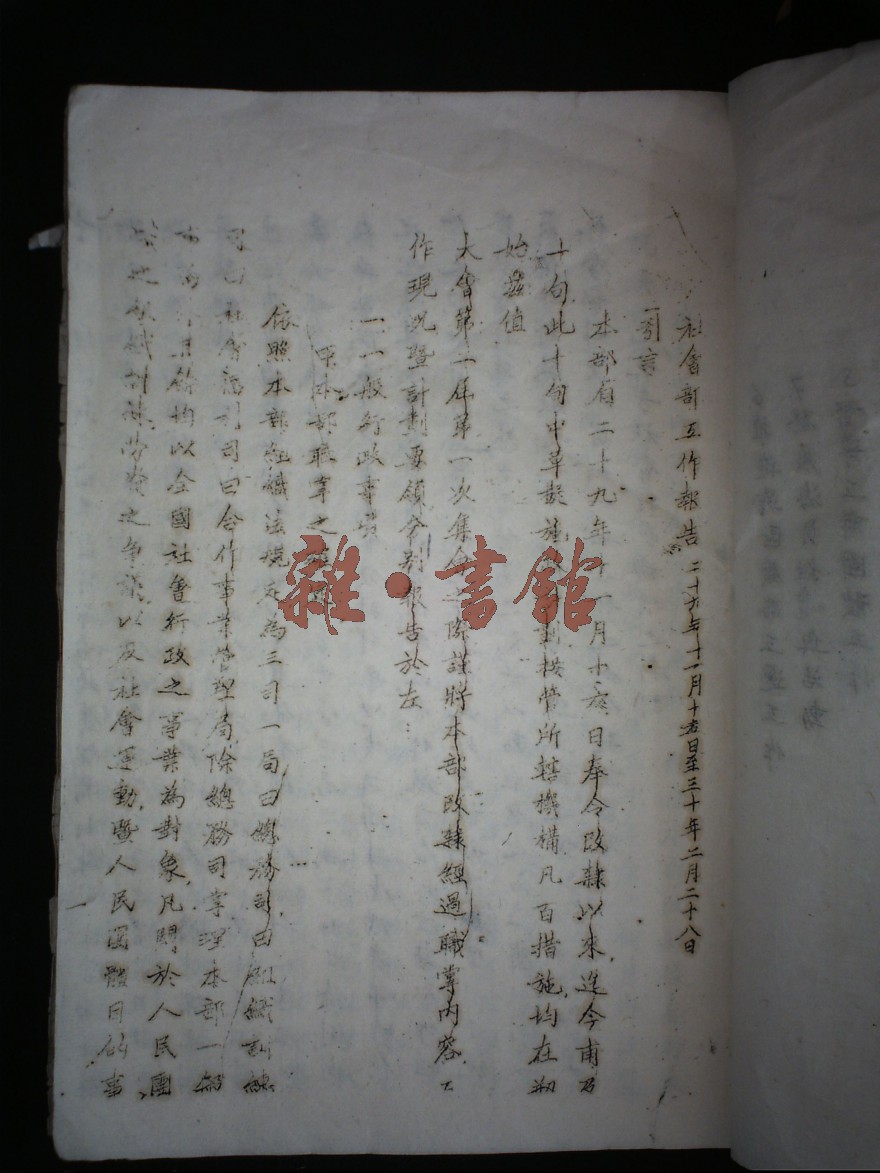 社會部工作報告 二十九年十一月十六日至三十年二月二十八日
引言
本部自二十九年十一月十六日奉令改隸以來迄今甫及
十旬此十旬中草擬施政計劃接管所轄機構凡百措施均在初
始茲值
大會第二屆第一次集會之際謹將本部改隸經過職掌內容工
作現況暨計劃要領分別報告於左：
一一般行政事實
甲本部職掌之
依照本部組織法規定為三司一局曰總務司曰組織訓練
司曰社會福利司曰合作事業管理局除總務司掌理本部一般
其餘均以全國社會行政之事業為對象凡關於人民團
之組織訓練勞資之爭議以及社會運動暨人民團體目的事
雜·書館